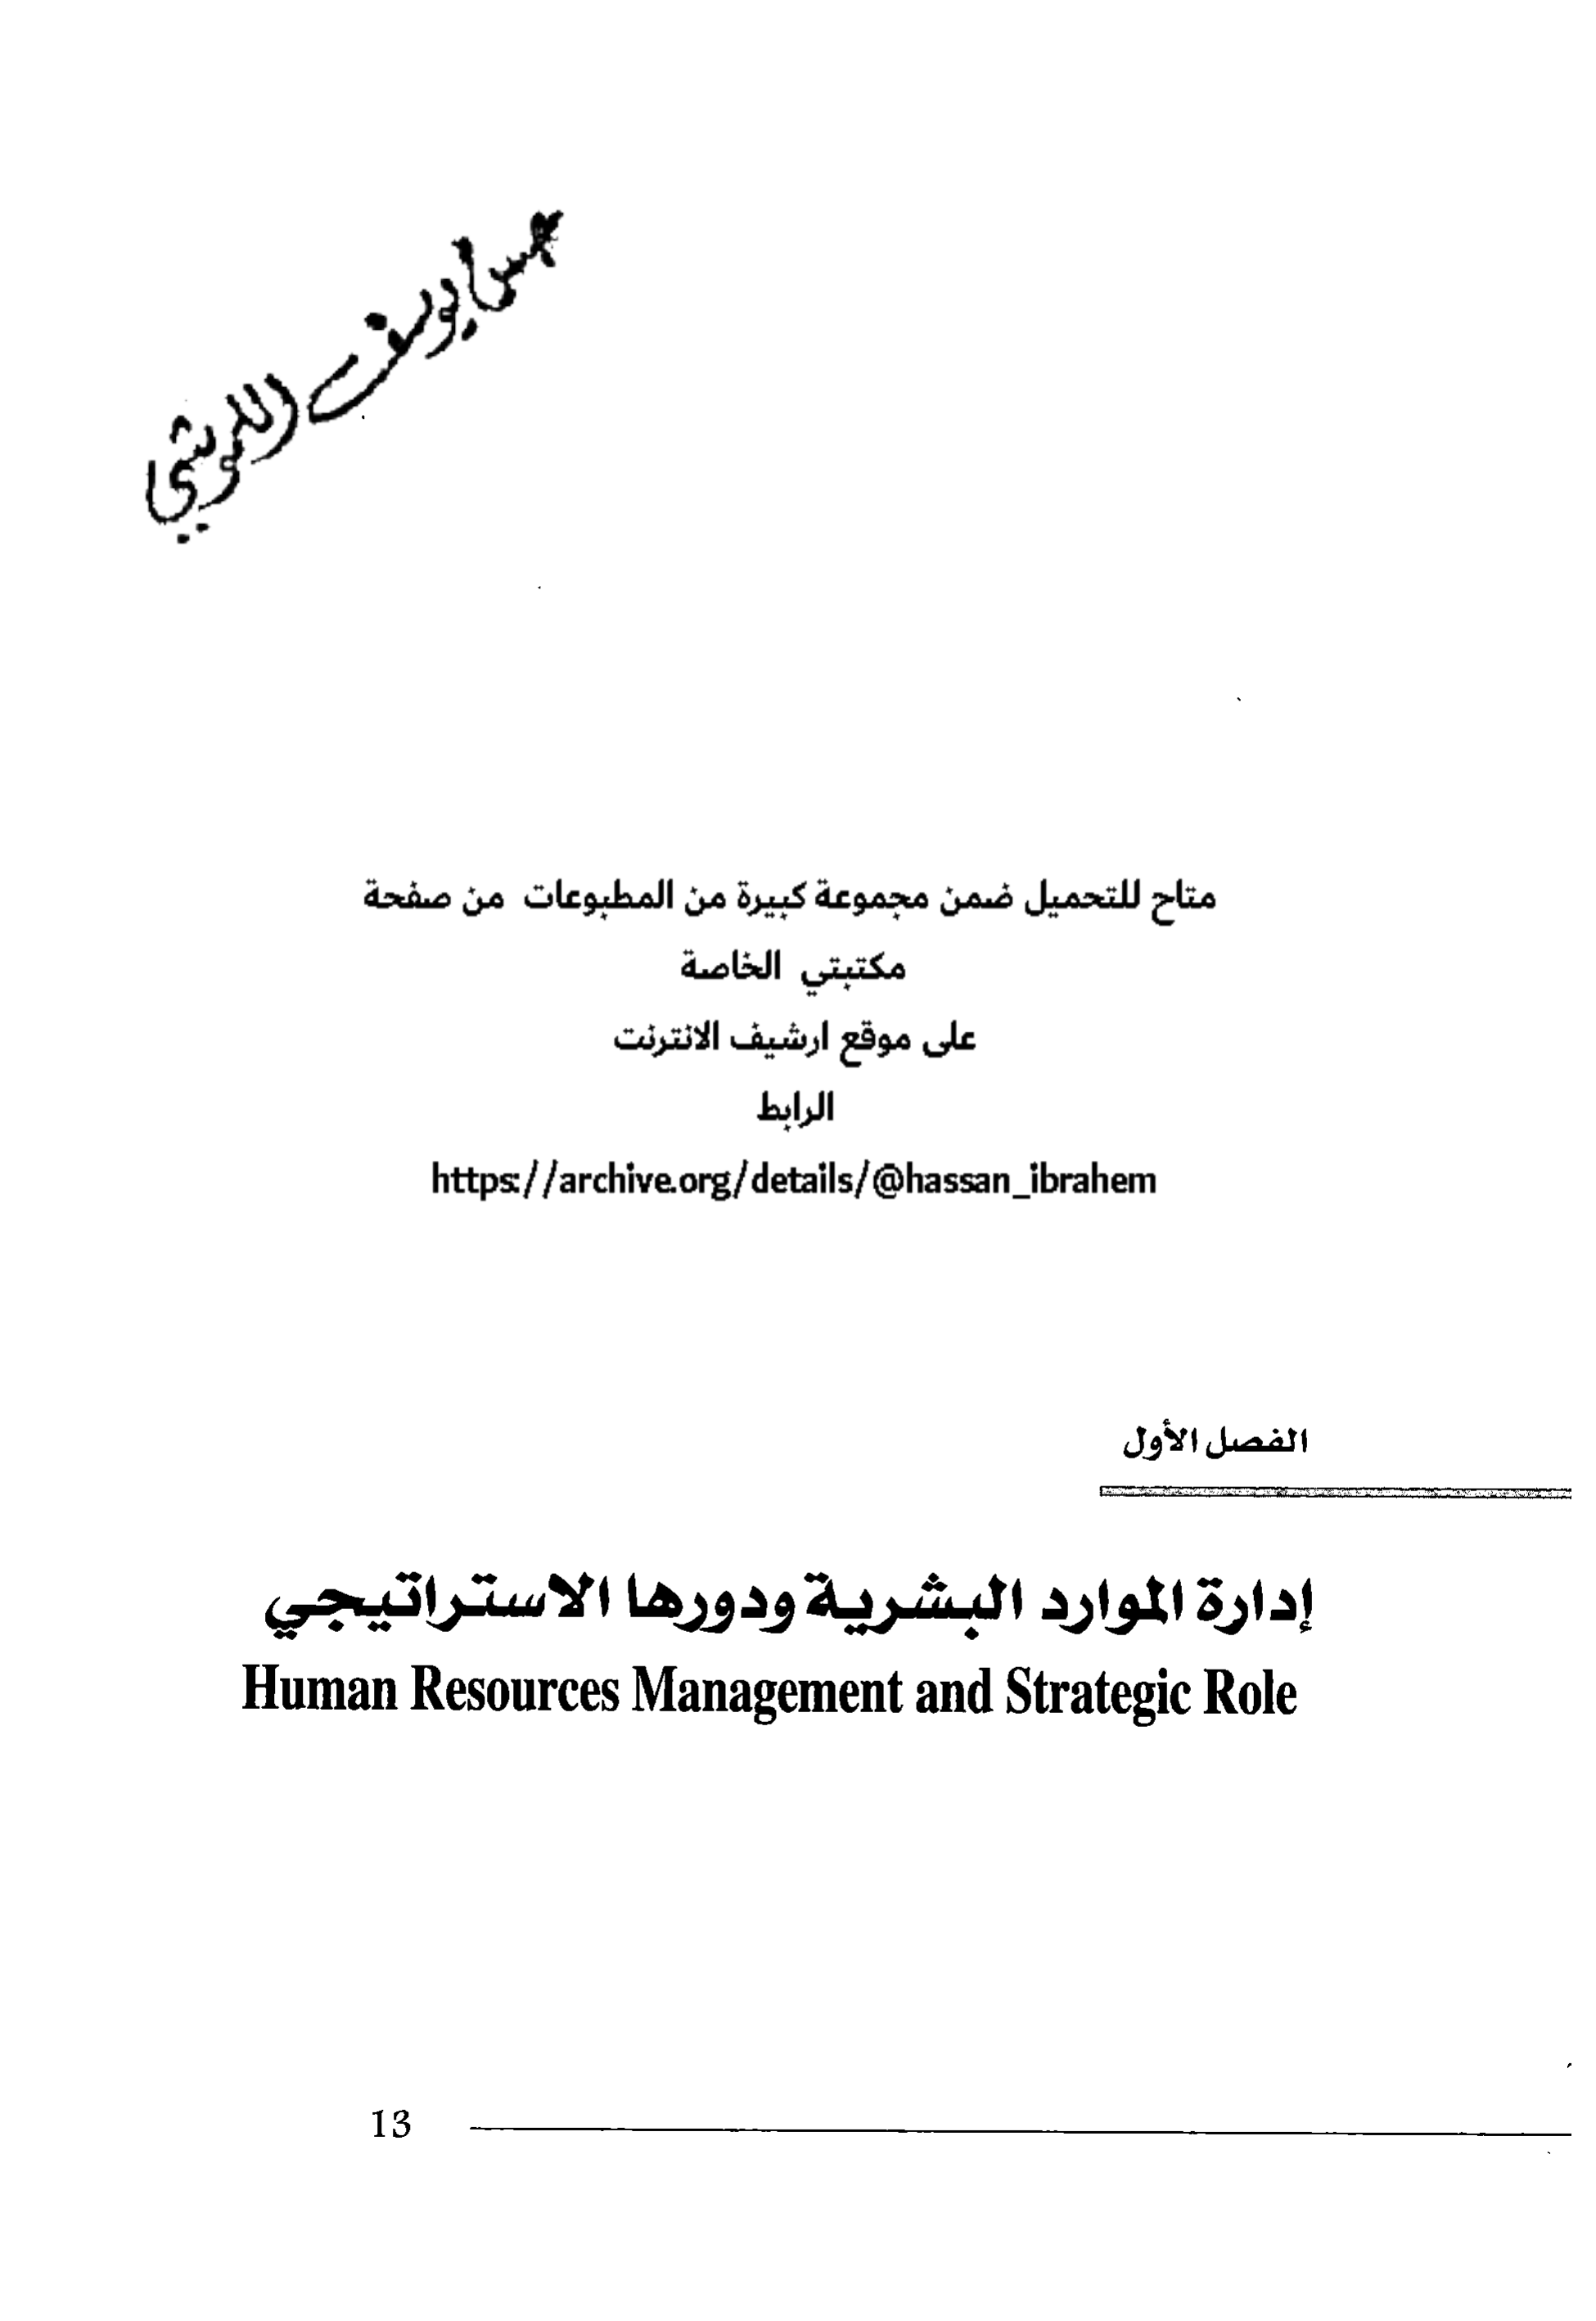 متاح للتحميل ضمن مجموعة كبيرة من المطبوعات من صفحة
مكتبتي الخاصة
على موقع ارشيف الانترنت
الرابط
https://archive.org/details/@hassan_ibrahem
الفصل الأول
إدارة الموارد البشرية ودورها الاستراتيجي
Human Resources Management and Strategic Role
13